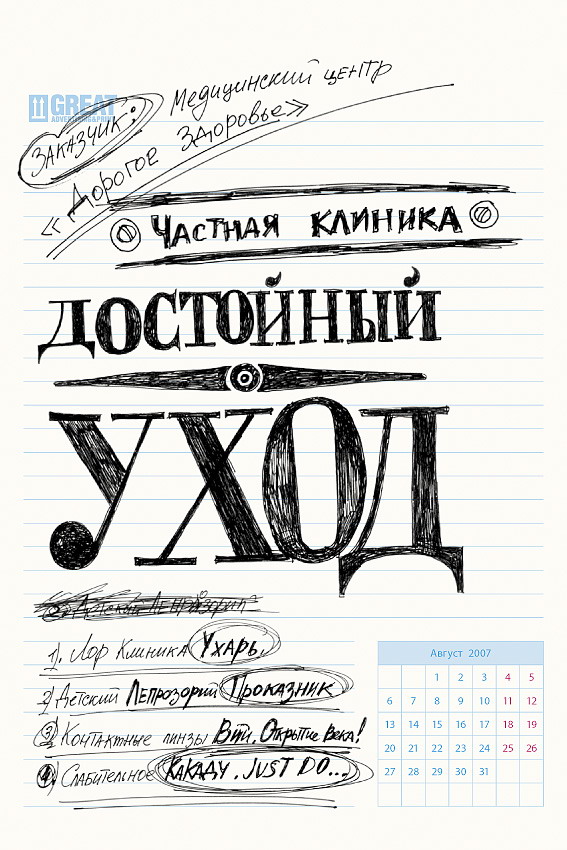 GREAT
ADVERTISING&PRINT
Заказчик: Медицинский центр
«Дорогое Здоровье»
Частная клиника
ДОСТОЙНЫЙ
УХОД
2). Детский Лепрозорий
1). Лор Клиника Ухарь.
2) Детский Лепрозорий Проказник
3) Контактные линзы Вий. Открытие века!
4) Слабительное КАКАДУ. JUST DO...
Август 2007
1 2 3 4 5
6 7 8 9 10 11 12
13 14 15 16 17 18 19
20 21 22 23 24 25 26
27 28 29 30 31